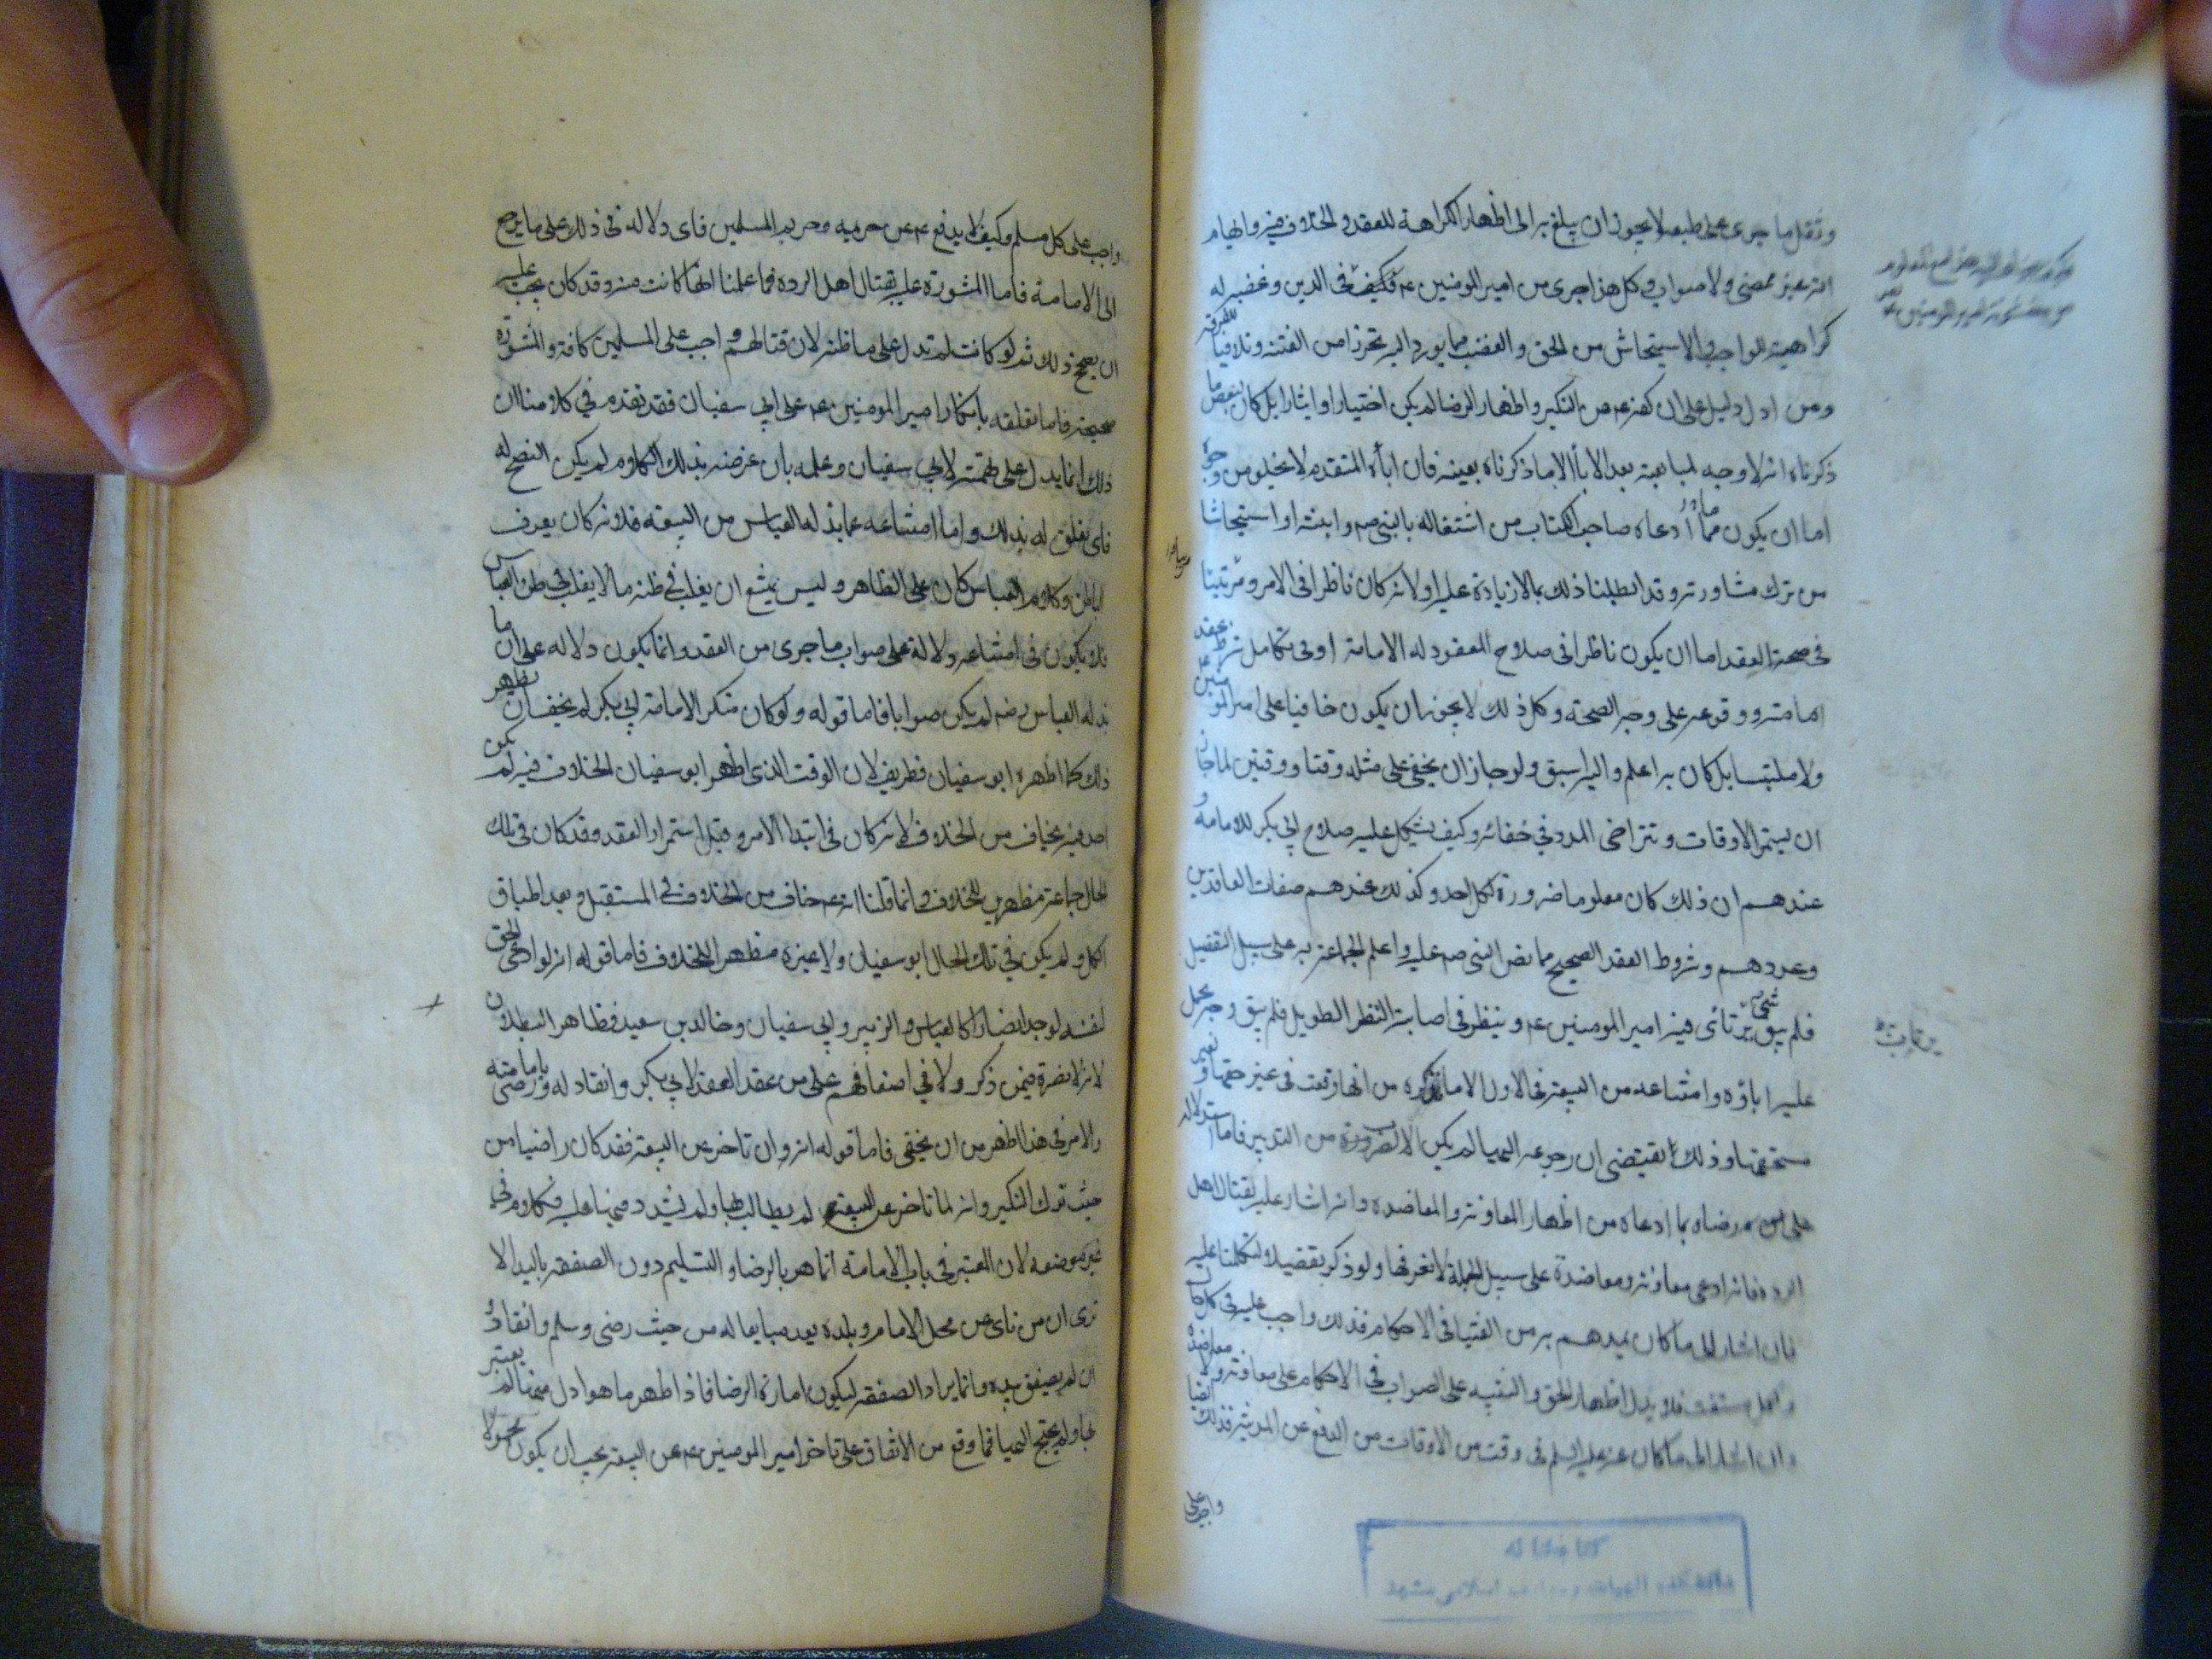 وثقل ما جرى على طبعه لا يجوز ان يبلغ به الى اظهار الكراهة للعقد والخلاف فيه وايهام
انه غير مرضى ولا صواب وكل هذا جرى من امير المومنين ع فكيف فى الدين وغضبه له
كراهيته للواجب والاستيحاش من الحق والغضب مما يورد اليه تحرزا من الفتنة وتلافيا للفرقة
ومن ادل دليل على ان كفه ع من النكير واظهار الرضا لم يكن اختيارا او ايثارا بل كان لبعض ما
ذكرناه انه لا وجه لمبايعته بعد الابا الا ما ذكرناه بعينه فان اباه المتقدم لا يخلو من وجوه
اما ان يكون مما ادعاه صاحب الكتاب من اشتغاله بالنبي صم وابنته او استيحاشا
من ترك مشاورته وقد ابطلنا ذلك بما لا زيادة عليه او لانه كان ناظرا فى الامر ومرتئيا
فى صحة العقد اما ان يكون ناظرا فى صلاح المعقود له الامامة او فى تكامل شروط عقد
امامته ووقوعه على وجه الصحة وكل ذلك لا يجوز ان يكون خافيا على امير المومنين
ولا ملتبسا بل كان به اعلم واليه اسبق ولو جاز ان يخفى على مثله وقتا ووقتين لما جاز
ان يستمر الاوقات وتتراخى المدد فى خفائه وكيف يشكل عليه صلاح ابى بكر للامامة و
عندهم ان ذلك كان معلوما ضرورة لكل احد وكذلك عندهم صفات العاقدين
وعددهم وشروط العقد الصحيح مما نص النبى صم عليه واعلم الجماعة به على سبيل التفصيل
فلم يبق شئ يرتائى فيه امير المومنين ع وينظر فى اصابته النظر الطويل فلم يبق وجه يحمل
عليه اباؤه وامتناعه من البيعة فى الاول الا ما نذكره من انها وقعت فى غير حقها و لغير
مستحقها وذلك يقتضى ان رجوعه اليها لم يكن الا لضرب من التدبير فاما استدلاله
على رضاه بما ادعاه من اظهار المعاونة والمعاضدة وانه اشار عليه بقتال اهل
الردة فانه ادعى معاونة ومعاضدة على سبيل الجملة لا نعرفها ولو ذكر تفصيلا لتكلمنا عليه
فان اشار الى ما كان يمدهم به من الفتيا فى الاحكام فذلك واجب عليه فى كل حال
ولكل مستفت فلا يدل اظهار الحق والتنبيه على الصواب فى الاحكام على معاونة ولا معاضدة
وان اشار الى ما كان عنه عليه السلم فى وقت من الاوقات من الدفع عن المدينة فذلك ايضا
واجب على
كتابخانه
دانشكده الهيات ومعارف اسلامى مشهد
واجب على كل مسلم وكيف لا يدفع ع عن حرمه وحريم المسلمين فاى دلالة فى ذلك على ما يرجع
الى الامامة فاما المشورة عليه بقتال اهل الردة فما علمنا انها كانت منه وقد كان يجب عليه
ان يصحح ذلك ثم لو كانت لم تدل على ما ظنه لان قتالهم واجب على المسلمين كافة والمشورة
صحيحة فاما تعلقه بانكار امير المومنين ع على ابى سفيان فقد تقدم فى كلامنا ان
ذلك انما يدل على تهمته لابى سفيان وعلمه بان غرضه بذلك الكلام لم يكن النصح له
فاى تعلق له بذلك واما امتناعه عما بذله العباس من البيعة فلانه كان يعرف
الباطن وكلام العباس كان على الظاهر وليس يمتنع ان يغلب فى ظنه ما لا يغلب فى ظن العباس
فلا يكون فى امتناعه دلالة على صواب ما جرى من العقد وانما يكون دلالة على ان ما
بذله العباس رض لم يكن صوابا فاما قوله ولو كان منكرا لامامة ابى بكر لم يخف ان يظهر
ذلك كما اظهره ابو سفيان فطريف لان الوقت الذى اظهر ابو سفيان الخلاف فيه لم يكن
احد فيه يخاف من الخلاف لانه كان فى ابتدا الامر وقبل استمرار العقد وقد كان فى تلك
الحال جماعة مظهرين للخلاف وانما قلنا انه ع خاف من الخلاف فى المستقبل وبعد اطباق
الكل ولم يكن فى تلك الحال ابو سفيان ولا غيره مظهرا للخلاف فاما قوله انه لو ادعى الحق
لنفسه لوجد انصارا كالعباس والزبير وابى سفيان وخالد بن سعيد فظاهر البطلان
لانه لا نصرة فيمن ذكر ولا فى اضعافهم على من عقد العقد لابى بكر وانقاد له ورضى بامامته
والامر فى هذا اظهر من ان يخفى فاما قوله انه وان تاخر عن البيعة فقد كان راضيا من
حيث ترك النكير وانه لما تاخر عن البيعة لم يطالب بها ولم يشدد فيها عليه فكلام فى
غير موضعه لان المعتبر فى باب الامامة انما هو بالرضا والتسليم دون الصفقة باليد الا
ترى ان من ناى عن محل الامام وبلده يعد مبايعا له من حيث رضى وسلم وانقاد و
ان لم يصفق بيده وانما يراد الصفقة ليكون امارة الرضا فاذا ظهر ما هو ادل منها لم يعتبر
بها ولم يحتج اليها فما وقع من الاتفاق على تاخر امير المومنين ع عن البيعة يجب ان يكون محمولا